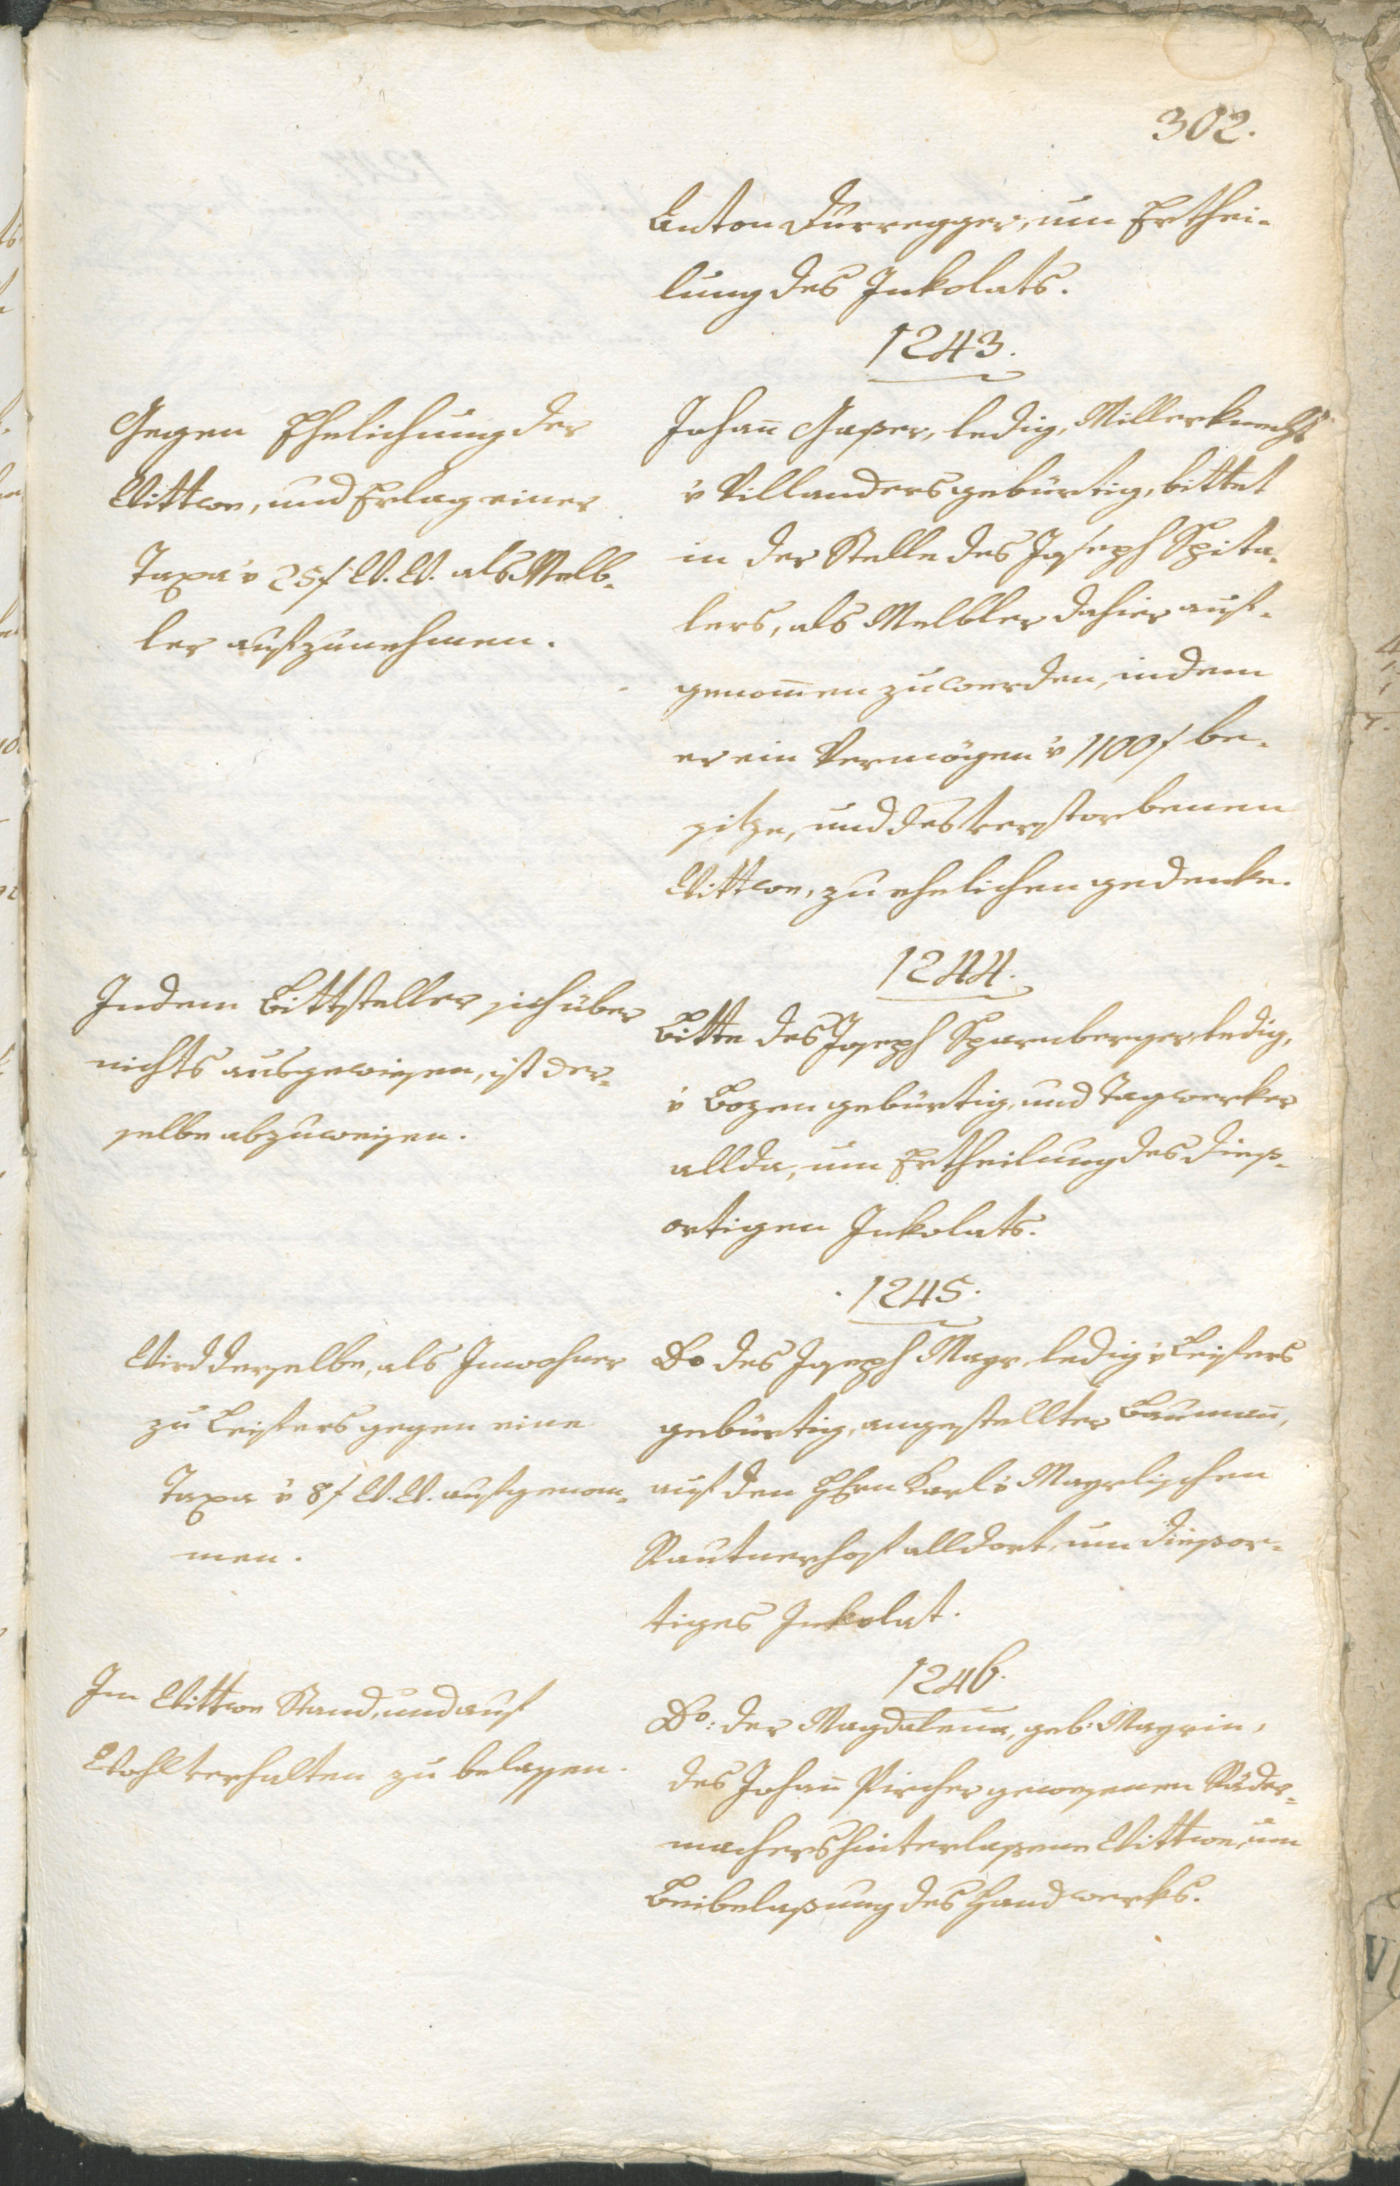 302.
Anton Dürregger, um Erthei-
lung des Inkolats.
1243.
Gegen Ehelichung der
Wittwe, und Erlag einer
Taxa v 25 f W. W. als Melb-
ler aufzunehmen.
Johan̄ Gasser, ledig, Millerknecht
v Villanders gebürtig, bittet
in der Stelle des Joseph Spita-
lers, als Melbler dahier auf-
genom̄en zu werden, indem
er ein Vermögen v 1100 f be-
sitze, und des verstorbenen
Wittwe, zu ehelichen gedenke.
1244.
Indem Bittsteller sich über
nichts ausgewiesen, ist der-
selbe abzuweisen.
Bitte des Joseph Sparnberger, ledig,
v Bozen gebürtig, und Tagwerker
allda, um Ertheilung des dies-
ortigen Inkolats.
1245.
Wird derselbe, als Inwohner
zu Leifers gegen eine
Taxa v 8 f W. W. aufgenom-
men.
Do des Joseph Mayr ledig v Leifers
gebürtig, angestellter Bauman̄,
auf den Hhen Karl v Mayrlischen
Stautnerhof alldort, um diesor-
tiges Inkolat.
1246.
Im Wittwe Stand, und auf
Wohlverhalten zu belassen.
Do: der Magdalena, geb: Mayrin,
des Johan̄ Pircher gewesenen Räder-
machers hinterlassene Wittwe, um
Beibelassung des Handwerks.